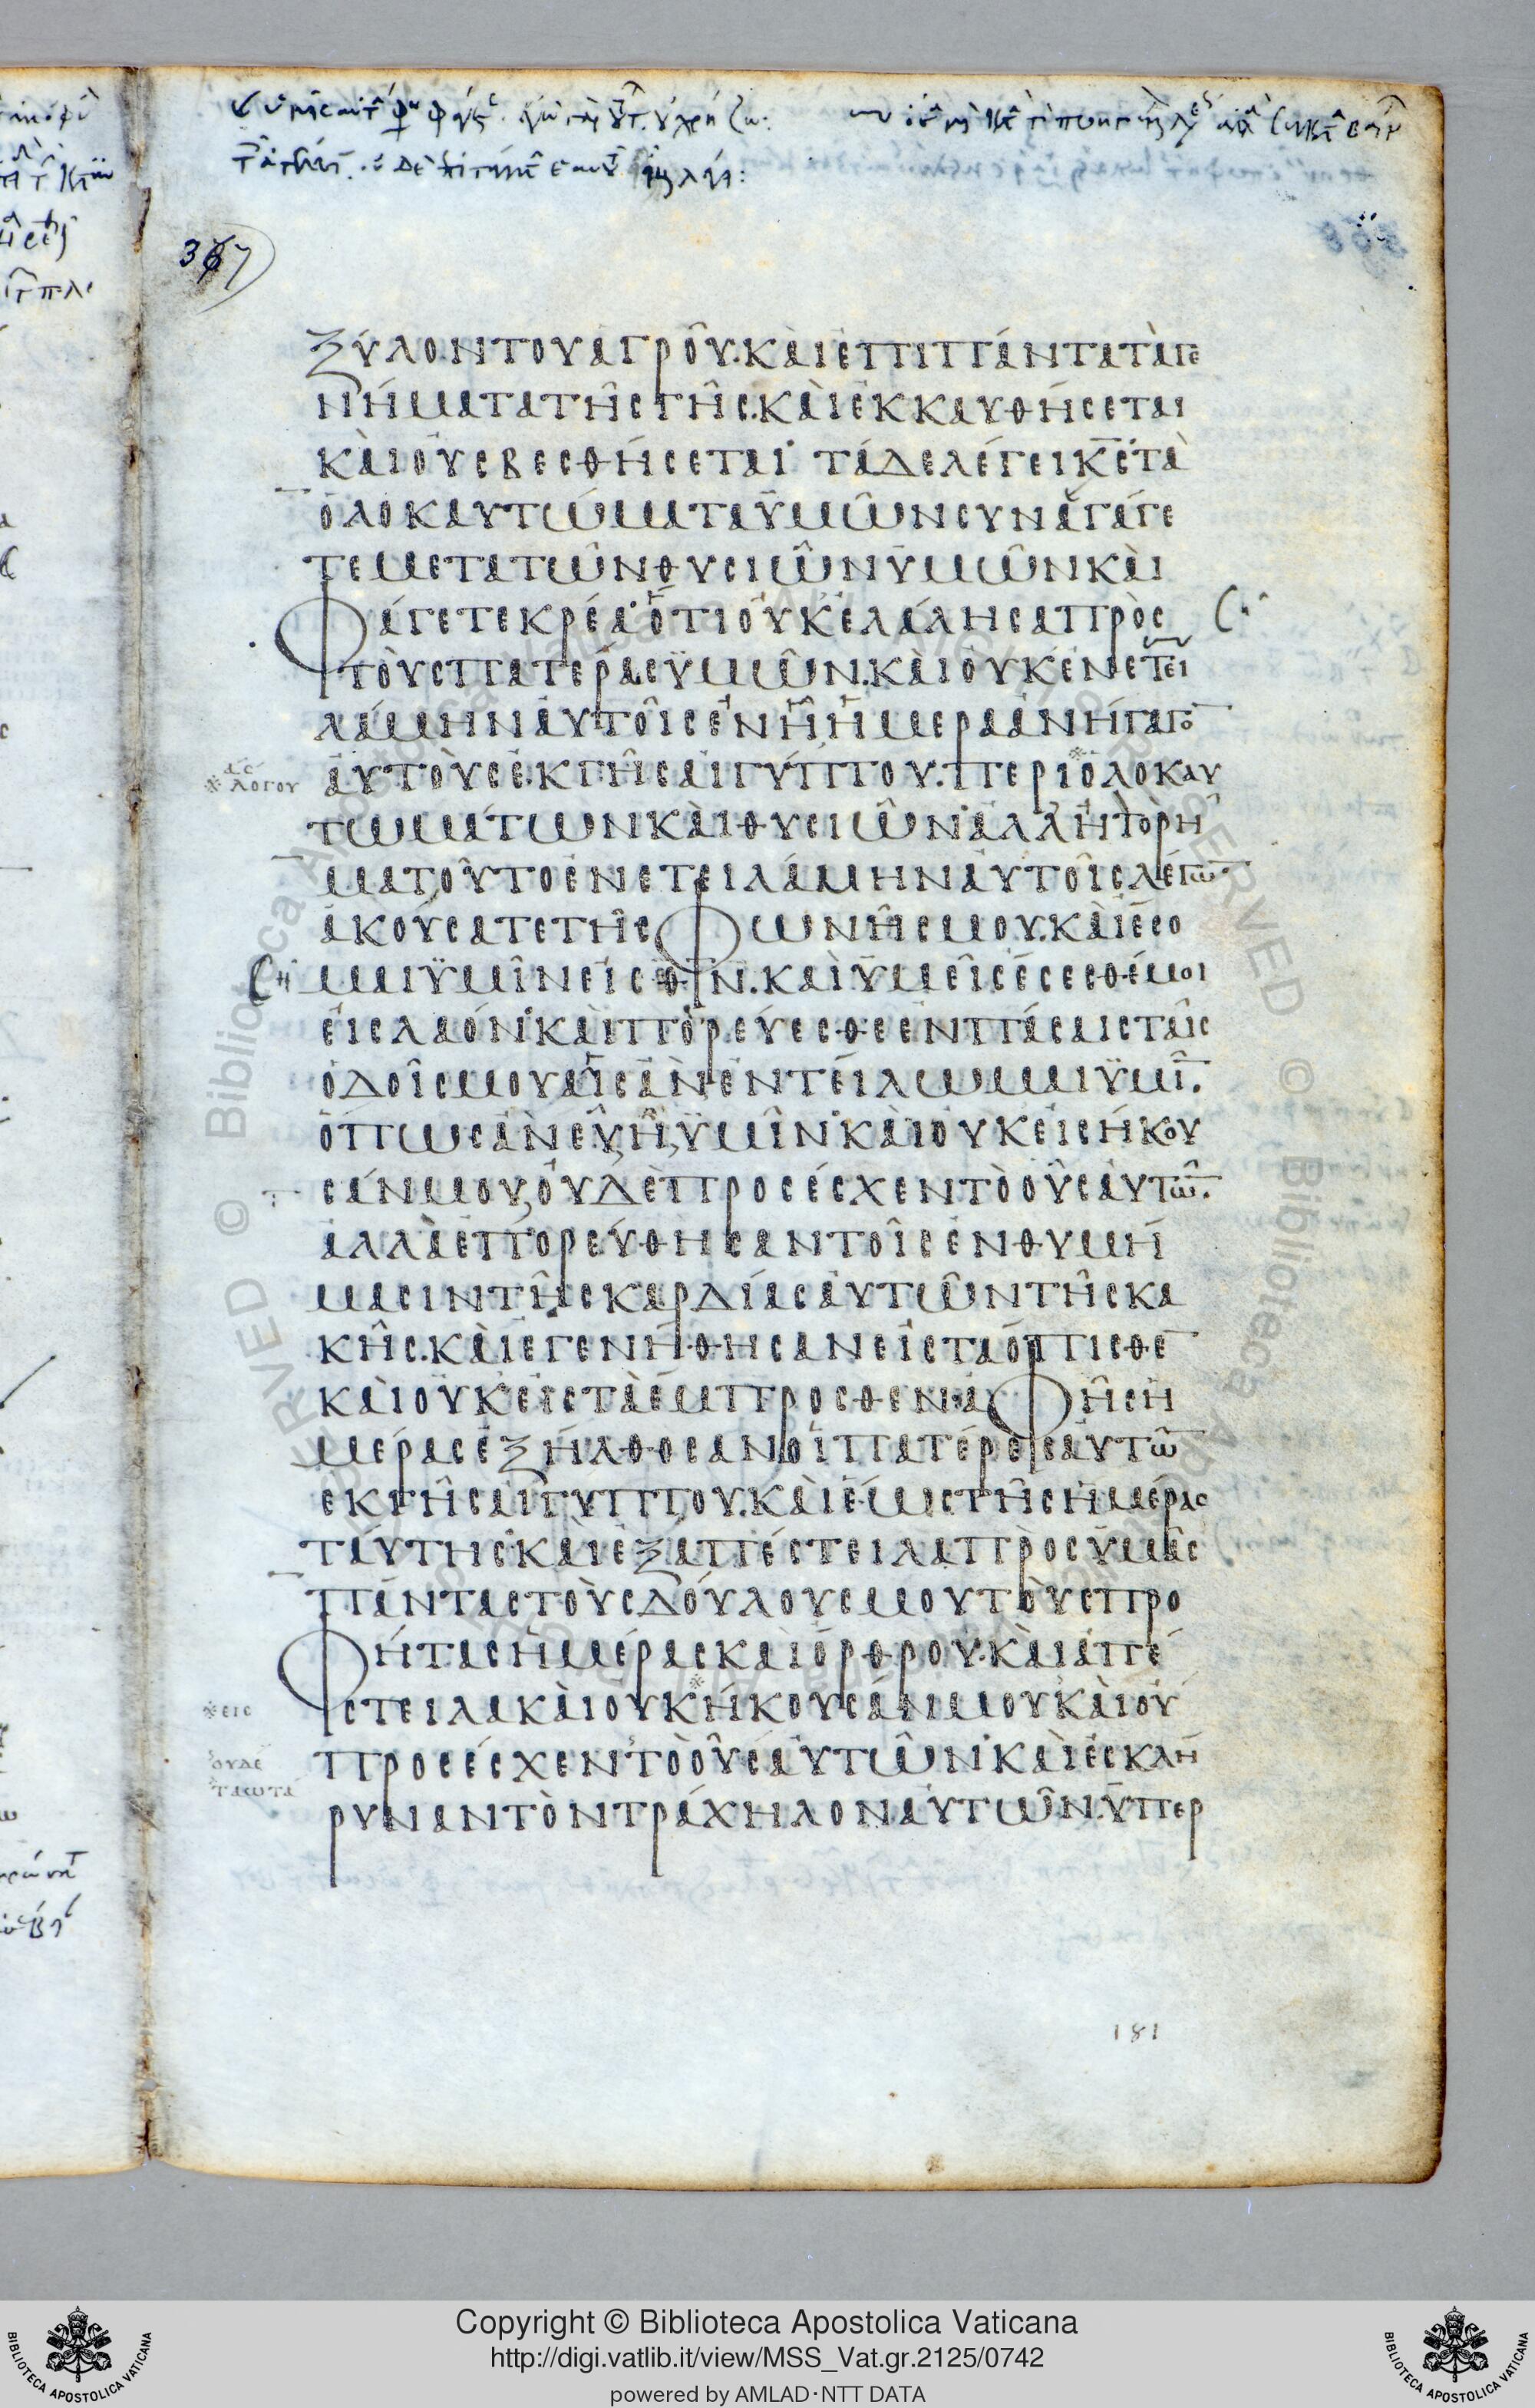 367
ξύλον τοῦ ἀγροῦ. καὶ ἐπὶ πάντα τὰ γε
νήματα τῆς γῆς. καὶ ἐκκαυθήσεται
καὶ οὐ σβεσθήσεται· τάδε λέγει κ̅ς̅ τὰ
ὁλοκαυτώματα ὑμῶν συναγάγε
τε μετὰ τῶν θυσιῶν ὑμῶν καὶ
φάγετε κρέα· ὅτι οὐκ ἐλάλησα πρὸς
τοὺς πατέρας ὑμῶν. καὶ οὐκ ἐνετει
λάμην αὐτοῖς ἐν ἧ ἡμέρα ἀνήγαγο̅
αὐτοὺς ἐκ γῆς αἰγύπτου. περὶ ὁλοκαυ
τωμάτων καὶ θυσιῶν· ἀλλ' ἢ τὸ ῥῆ
μα τοῦτο ἐνετειλάμην αὐτοῖς λέγω̅
ἀκούσατε τῆς φωνῆς μου. καὶ ἔσο
μαι ὑμῖν εἰς θ̅ν̅. καὶ ὑμεῖς ἔσεσθέ μοι
εἰς λαόν· καὶ πορεύεσθε ἐν πάσαις ταῖς
ὁδοῖς μου αἷς ἂν ἐντείλωμαι ὑμῖ̅.
ὅπως ἂν εὖ ἦ ὑμῖν· καὶ οὐκ εἰσήκου
σάν μου, οὐδὲ προσέσχεν τὸ οὖς αὐτῶ̅.
ἀλλὰ ἐπορεύθησαν τοῖς ἐνθυμή
μασιν τῆς καρδίας αὐτῶν τῆς κα
κῆς. καὶ ἐγενήθησαν εἰς τὰ ὄπισθε̅
καὶ οὐκ εἰς τὰ ἔμπροσθεν· ἀφ' ἧς ἡ
μέρας ἐξήλθοσαν οἱ πατέρες αὐτῶ̅
ἐκ γῆς αἰγύπτου. καὶ ἕως τῆς ἡμέρας
ταύτης· καὶ ἐξαπέστειλα πρὸς ὑμᾶς
πάντας τοὺς δούλους μου τοὺς προ
φήτας ἡμέρας καὶ ὄρθρου. καὶ ἀπέ
στειλα καὶ οὐκ ἤκουσάν μου καὶ οὐ
προσέσχεν τὸ οὖς αὐτῶν· καὶ ἐσκλή
ρυναν τὸν τράχηλον αὐτῶν. ὑπερ
※ λόγου
※ εις
ουδε
τα ωτα
181
Copyright © Biblioteca Apostolica Vaticana
http://digi.vatlib.it/view/MSS_Vat.gr.2125/0742
powered by AMLAD·NTT DATA
BIBLIOTECA APOSTOLICA VATICANA
BIBLIOTECA APOSTOLICA VATICANA